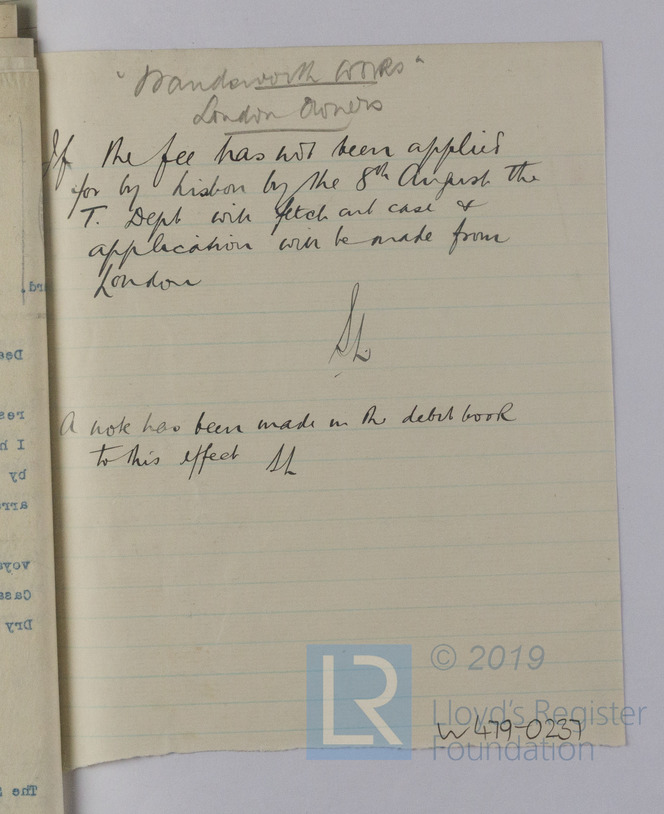 "Wandsworth Works"
London Owners
If the fee has not been applied
for by Lisbon by the 8th August the
T. Dept will fetch out case &
application will be made from
London
SL
A note has been made in the debit book
to this effect SL
LR
© 2019
Lloyd's Register
Foundation
W479-0237
rd.
Dea
res
I h
by
arra
voya
Cass
Dry
The